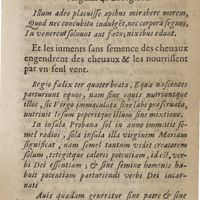 Illum adeo placuisse apibus mirabere morem,
Quod nec concubitu indulgēt, nec corpora segnes,
In venerem soluunt aut fœtus nixibus edunt.
Et les iuments sans semence des cheuaux
engendrent des cheuaux & les nourrissent
par vn seul vent.
Regio felix ter quater beata, Equæ nõ sentes
parturiunt equos, nam sine equis nutriuntque
illos, sic Virgo immaculata sine labe præseruata,
nutrit Iesum peperitque illum sine mixtione.
In insula Probana sol in anno immittit se
mel radios, sola insula illa virginem Mariam
significat, nam semel tantum vidit creatorem
solum, tetigitque caloris potentiam, id est, ver
bi Dei essentiam, & sine semine hominis ha
buit potentiam parturiendi verbi Dei incar
nati
Auis quædam generatur sine patre & sine